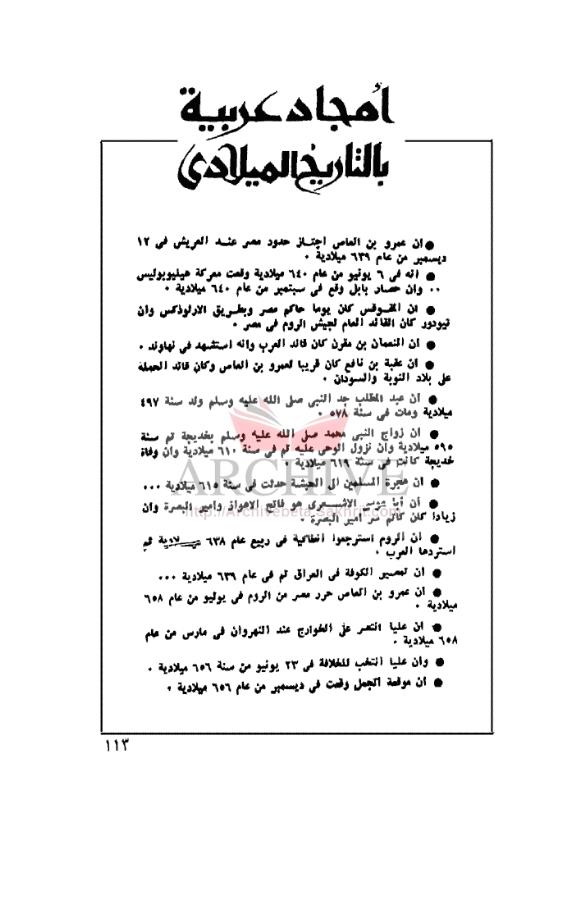 أمجاد عربية
بالتاريخ الميلادي
● ان عمرو بن العاص اجتاز حدود مصر عند العريش في ١٢
ديسمبر من عام ٦٣٩ ميلادية .
● انه في ٦ يونيو من عام ٦٤٠ ميلادية وقعت معركة هيليوبوليس
.. وان حصار بابل وقع في سبتمبر من عام ٦٤٠ ميلادية .
● ان المقوقس كان يوما حاكم مصر وبطريق الارلوذكس وان
تيودور كان القائد العام لجيش الروم في مصر .
● ان النعمان بن مقرن كان قائد العرب وانه استشهد في نهاوند .
● ان عقبة بن نافع كان قريبا لعمرو بن العاص وكان قائد الحملة
على بلاد النوبة والسودان .
● ان عبد المطلب جد النبي صلى الله عليه وسلم ولد سنة ٤٩٧
ميلادية ومات في سنة ٥٧٨ .
● ان زواج النبي محمد صلى الله عليه وسلم بخديجة تم سنة
٥٩٥ ميلادية وان نزول الوحي عليه تم في سنة ٦١٠ ميلادية وان وفاة
خديجة كانت في سنة ٦١٩ ميلادية .
● ان هجرة المسلمين الى الحبشة حدثت في سنة ٦١٥ ميلادية ...
● ان أبا موسى الاشعري هو فاتح الاهواز وامير البصرة وان
زيادا كان كاتم سر امير البصرة .
● ان الروم استرجعوا انطاكية في ربيع عام ٦٣٨ ميلادية ثم
استردها العرب .
● ان تمصير الكوفة في العراق تم في عام ٦٣٩ ميلادية ...
● ان عمرو بن العاص حرر مصر من الروم في يوليو من عام ٦٥٨
ميلادية .
● ان عليا انتصر على الخوارج عند النهروان في مارس من عام
٦٥٨ ميلادية .
● وان عليا انتخب للخلافة في ٢٣ يونيو من سنة ٦٥٦ ميلادية .
● ان موقعة الجمل وقعت في ديسمبر من عام ٦٥٦ ميلادية .
١١٣
ARCHIVE
http://Archivebeta.Sakhrit.com